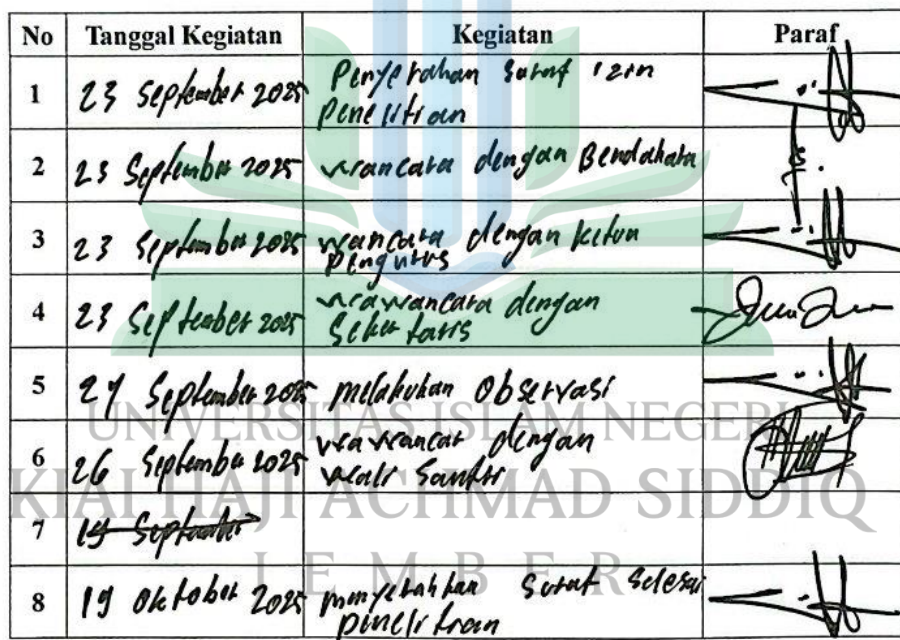 No Tanggal Kegiatan Kegiatan Paraf
1 23 September 2025 Penyerahan surat izin
penelitian
2 23 September 2025 wancara dengan Bendahara
3 23 September 2025 wancara dengan ketua
pengurus
4 23 September 2025 wawancara dengan
Sekertaris
5 September 2025 melakukan observasi
6 26 September 2025 wawancar dengan
wali santri
7 19 September
8 19 Oktober 2025 menyerahkan surat selesai
penelitian
UNIVERSITAS ISLAM NEGERI
KIAI HAJI ACHMAD SIDDIQ
JEMBER